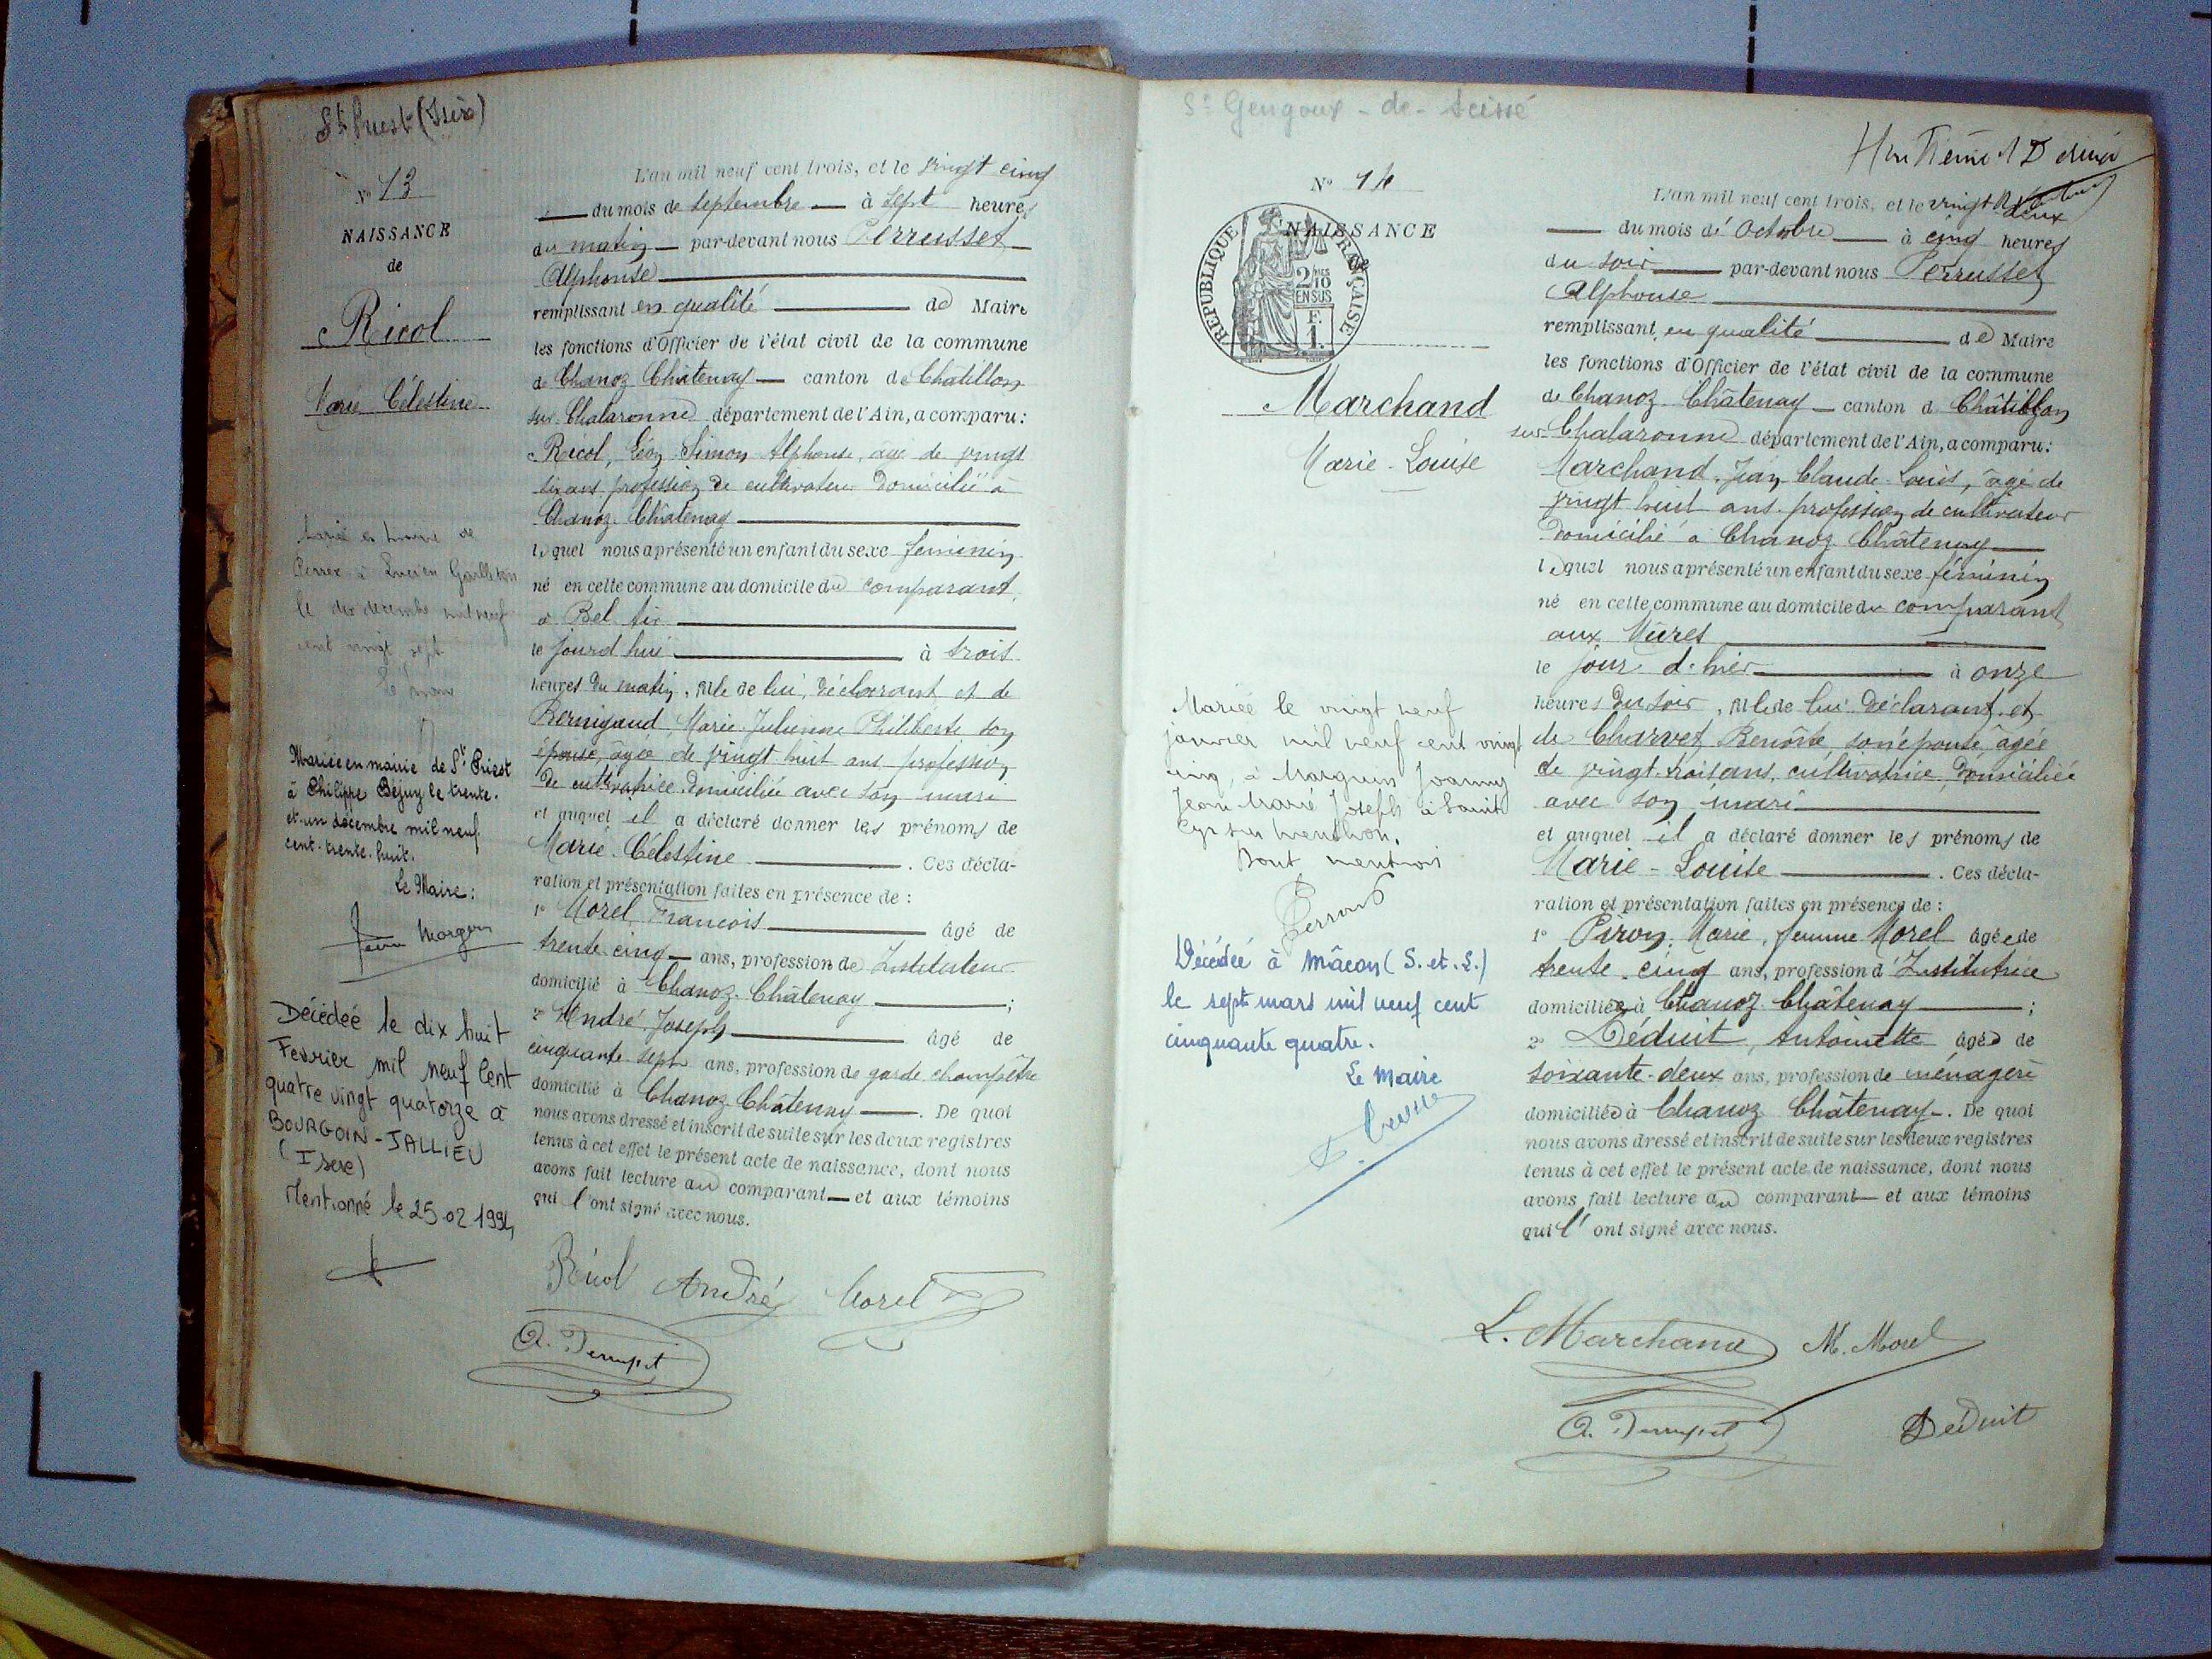 St Priest (Isère)
No 13
NAISSANCE
de
Ricol
Marie Célestine
Mariée en mairie de
Perrex à Lucien
le dix décembre mil neuf
cent vingt sept
Le maire
Mariée en mairie de St Priest
à Philippe Béjuy le trente.
et-un décembre mil neuf
cent-trente-huit.
Le Maire:
Décédée le dix huit
Fevrier mil neuf Cent
quatre vingt quatorze à
BOURGOIN-JALLIEU
(Isere)
Mentionné le 25-02 1994
L'an mil neuf cent trois, et le vingt cinq
du mois de septembre à sept heures
du matin par-devant nous Perrusset
Alphonse
remplissant en qualité de Maire
les fonctions d'Officier de l'état civil de la commune
de Chanoz Châtenay canton de Châtillon
sur Chalaronne département de l'Ain, a comparu:
Ricol, Léon Simon Alphonse, âgé de vingt
six ans profession de cultivateur domicilié à
Chanoz Châtenay
lequel nous a présenté un enfant du sexe féminin
né en cette commune au domicile du comparant,
à Bel Air
le jourd'hui à trois
heures du matin, fille de lui, déclarant et de
Bernigaud, Marie Julienne Philiberte son
épouse, agée de vingt huit ans profession
de cultivatrice domiciliée avec son mari
et auquel il a déclaré donner les prénoms de
Marie-Célestine. Ces décla-
ration et présentation faites en présence de:
1° Morel François âgé de
trente-cinq ans, profession de Instituteur
domicilié à Chanoz-Châtenay;
2° André Joseph âgé de
cinquante-sept ans, profession de garde champêtre
domicilié à Chanoz Châtenay. De quoi
nous avons dressé et inscrit de suite sur les deux registres
tenus à cet effet le présent acte de naissance, dont nous
avons fait lecture au comparant et aux témoins
qui l'ont signé avec nous.
Ricol André Morel
A. Perrusset
St Gengoux-de-Scissé
No 14
NAISSANCE
de
REPUBLIQUE FRANÇAISE
2/10
EN SUS
F.
1.
Marchand
Marie-Louise
Mariée le vingt neuf
janvier mil neuf cent vingt
cinq, à Marguin Joanny
Jean Marie Joseph à Saint
Cyr sur Menthon.
Dont mention
Décédée à Mâcon (S.-et-L.)
le sept mars mil neuf cent
cinquante quatre.
Le Maire
L'an mil neuf cent trois, et le vingt deux
du mois d'Octobre à cinq heures
du soir par-devant nous Perrusset
Alphonse
remplissant en qualité de Maire
les fonctions d'Officier de l'état civil de la commune
de Chanoz-Châtenay canton de Châtillon
sur Chalaronne département de l'Ain, a comparu:
Marchand, Jean-Claude-Louis, âgé de
vingt huit ans profession de cultivateur
domicilié à Chanoz-Châtenay
lequel nous a présenté un enfant du sexe féminin
né en cette commune au domicile du comparant
aux Mûres
le jour d'hier à onze
heures du soir, fille de lui déclarant et
de Charvet, Benoîte, son épouse âgée
de vingt-trois ans, cultivatrice, domiciliée
avec son mari
et auquel il a déclaré donner les prénoms de
Marie-Louise. Ces décla-
ration et présentation faites en présence de:
1° Piron, Marie, femme Morel âgée de
trente-cinq ans, profession d'Institutrice
domiciliée à Chanoz-Châtenay;
2° Déduit, Antoinette âgée de
soixante-deux ans, profession de ménagère
domiciliée à Chanoz Châtenay. De quoi
nous avons dressé et inscrit de suite sur les deux registres
tenus à cet effet le présent acte de naissance, dont nous
avons fait lecture au comparant et aux témoins
qui l'ont signé avec nous.
L. Marchand M. Morel
A. Perrusset Déduit